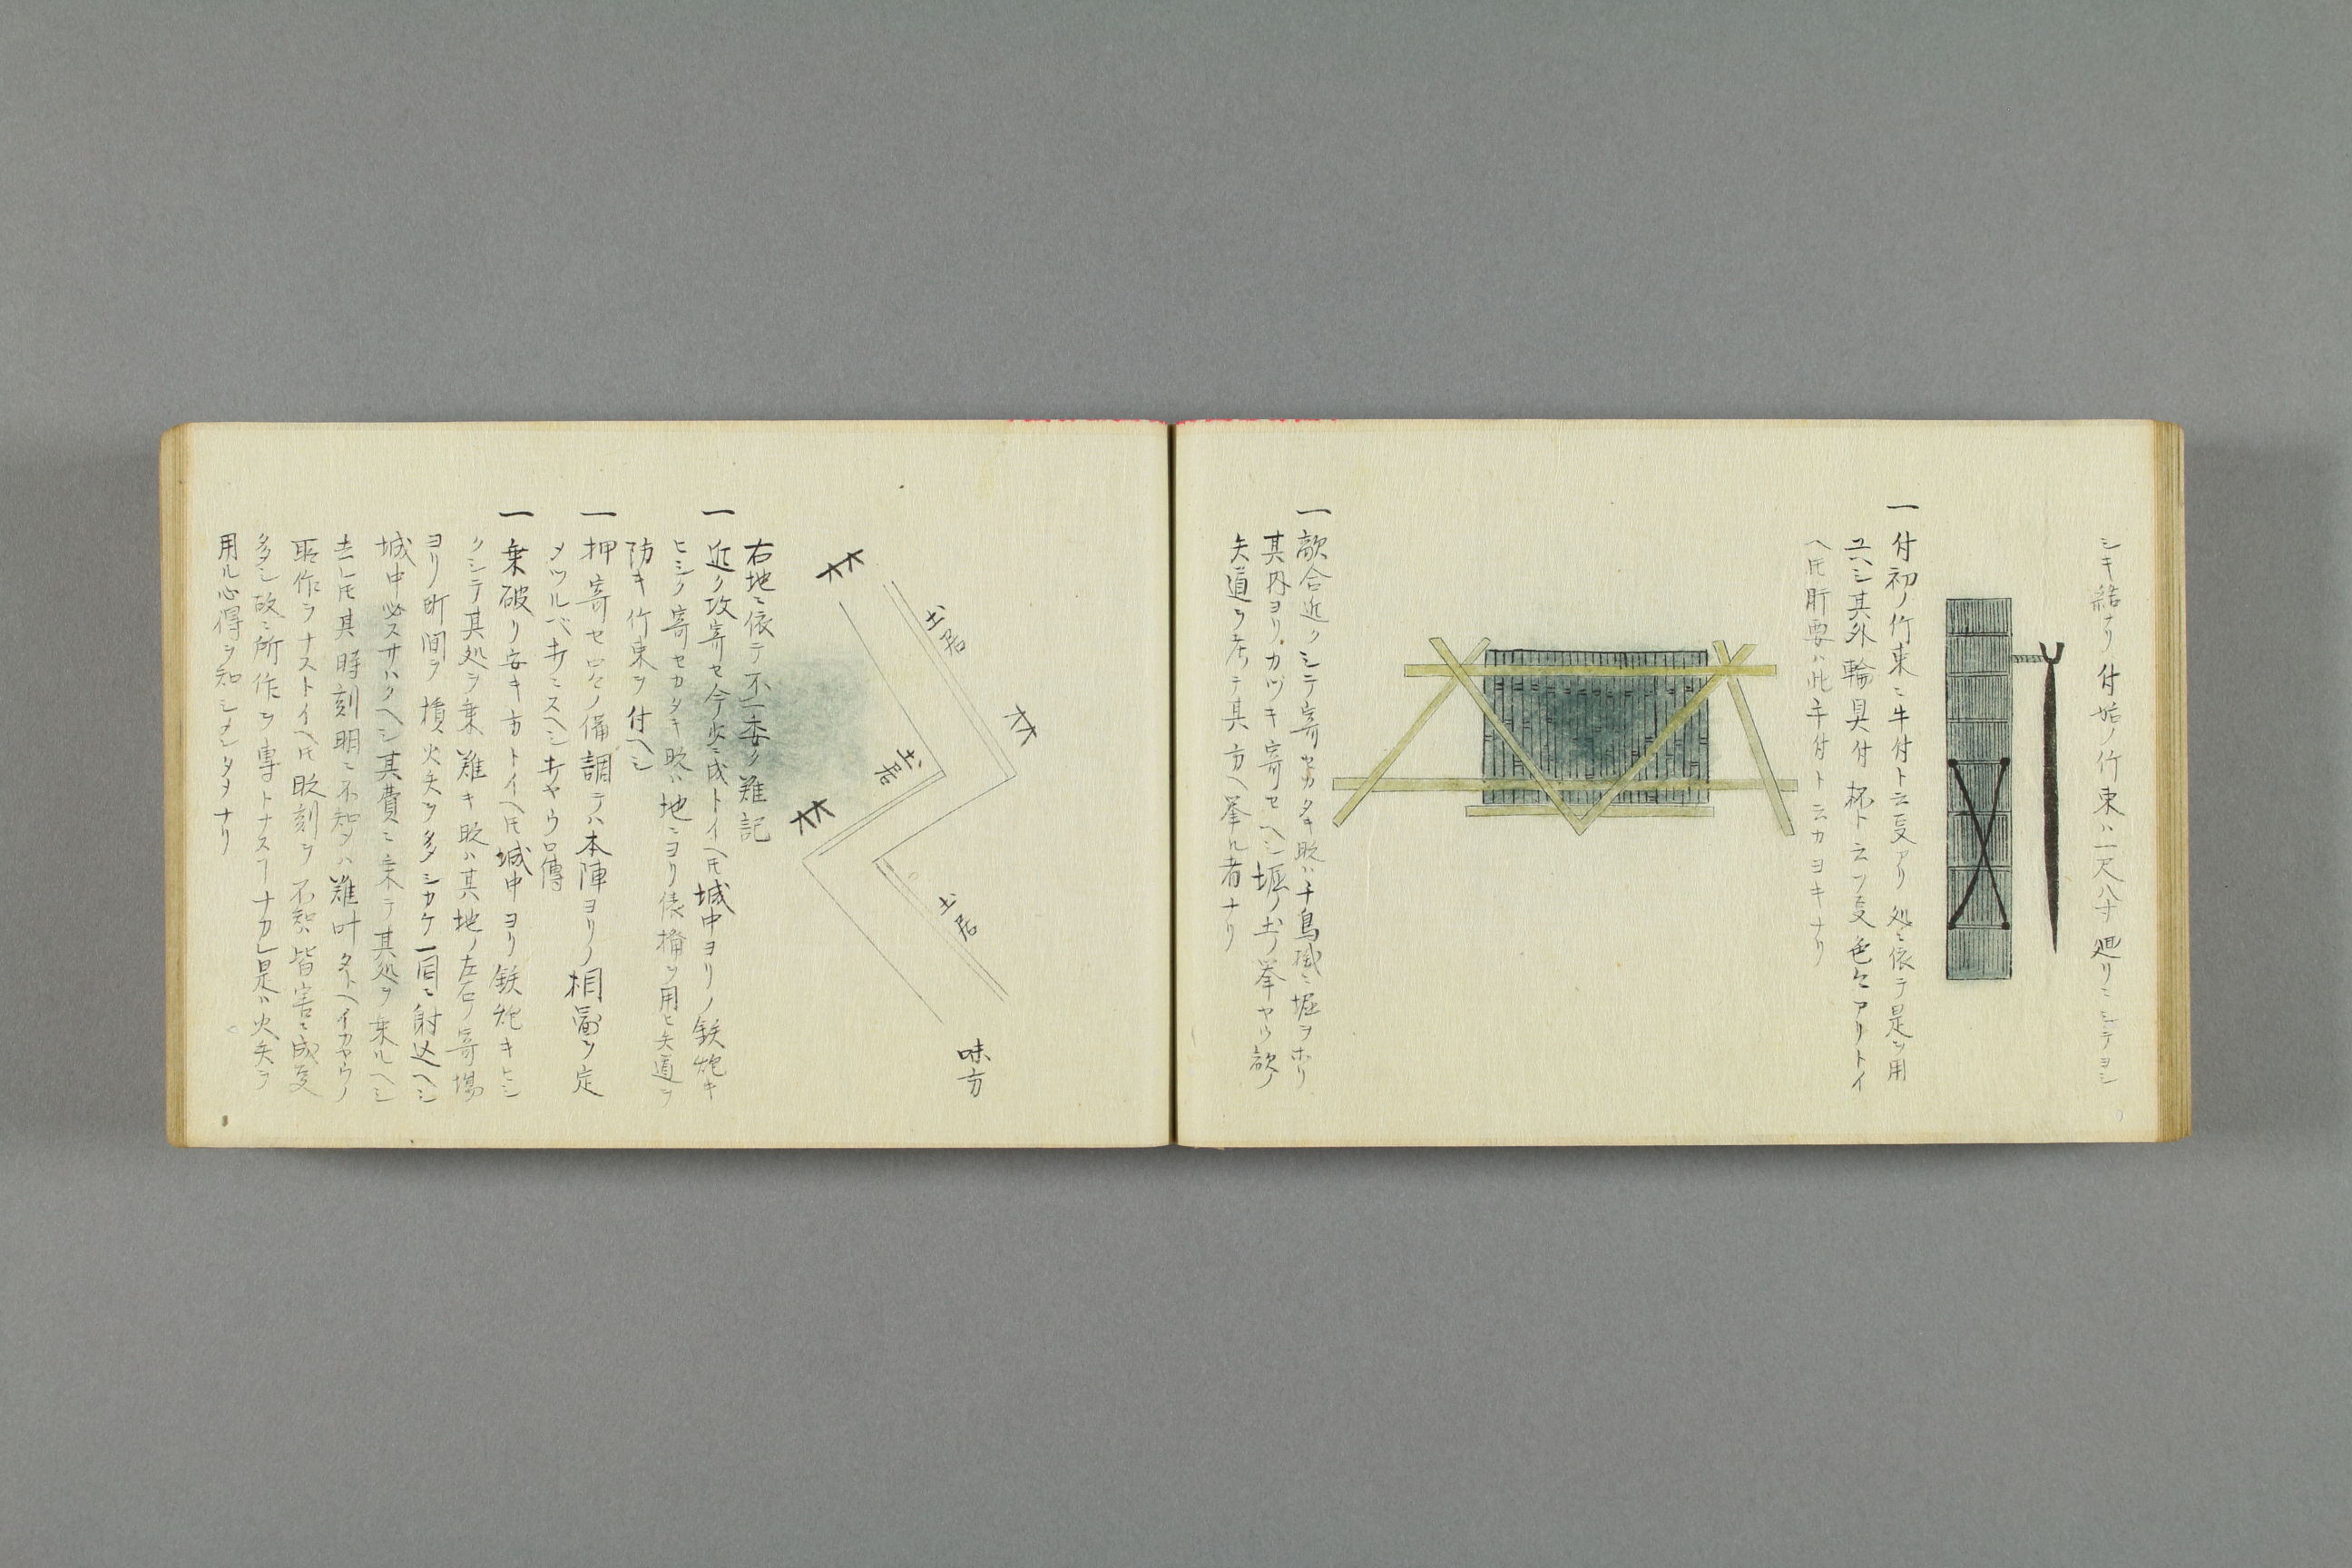 シキ結ナリ付始ノ竹束ハ一尺八寸廻リニシテヨシ
一付初ノ竹束ニ牛付ト云叓アリ処ニ依テ是ヲ用
ユヘシ其外輪具付杯ト云フ叓色々アリトイ
ヘ𪜈肝要ハ此牛付ト云カヨキナリ
一敵合近クシテ寄セカタキ時ハ千鳥掛ニ堀ヲホリ
其内ヨリカツキ寄セヘシ堀ノ土ヲ挙ヤウ敵ノ
矢道ヲ考テ其方ヘ挙ル者ナリ
土居
土居
土居
味方
右地ニ依テ不一委ク難記
一近ク攻寄セ今少ニ成トイヘ𪜈城中ヨリノ鉄炮キ
ヒシク寄セカタキ時ハ地ニヨリ俵楯ヲ用ヒ矢道ヲ
防キ竹束ヲ付ヘシ
一押寄セ口々ノ備調テハ本陣ヨリノ相圖ヲ定
メツルベ打ニスヘシ打ヤウ口傳
一乗破リ安キ方トイヘ𪜈城中ヨリ鉄炮キヒシ
クシテ其処ヲ乗難キ時ハ其地ノ左右ノ寄場
ヨリ町間ヲ積火矢ヲ多シカケ一同ニ射込ヘシ
城中必スサハクヘシ其費ニ乗テ其処ヲ乗ルヘシ
去レ𪜈其時刻明ニ不知ハ難叶タトヘイカヤウノ
所作ヲナストイヘ𪜈時刻ヲ不知ハ皆害ニ成叓
多シ故ニ所作ヲ専トナスヿナカレ是ハ火矢ヲ
用ル心得ヲ知シメンタメナリ